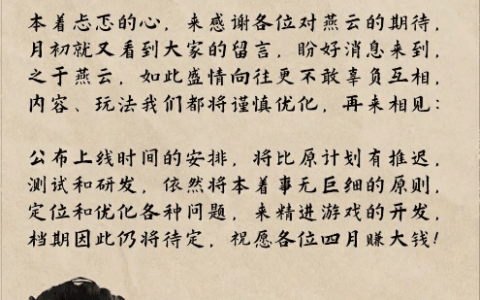 本着忐忑的心，来感谢各位对燕云的期待，
月初就又看到大家的留言，盼好消息来到，
之于燕云，如此盛情向往更不敢辜负互相，
内容、玩法我们都将谨慎优化，再来相见：
公布上线时间的安排，将比原计划有推迟，
测试和研发，依然将本着事无巨细的原则，
定位和优化各种问题，来精进游戏的开发，
档期因此仍将待定，祝愿各位四月赚大钱！